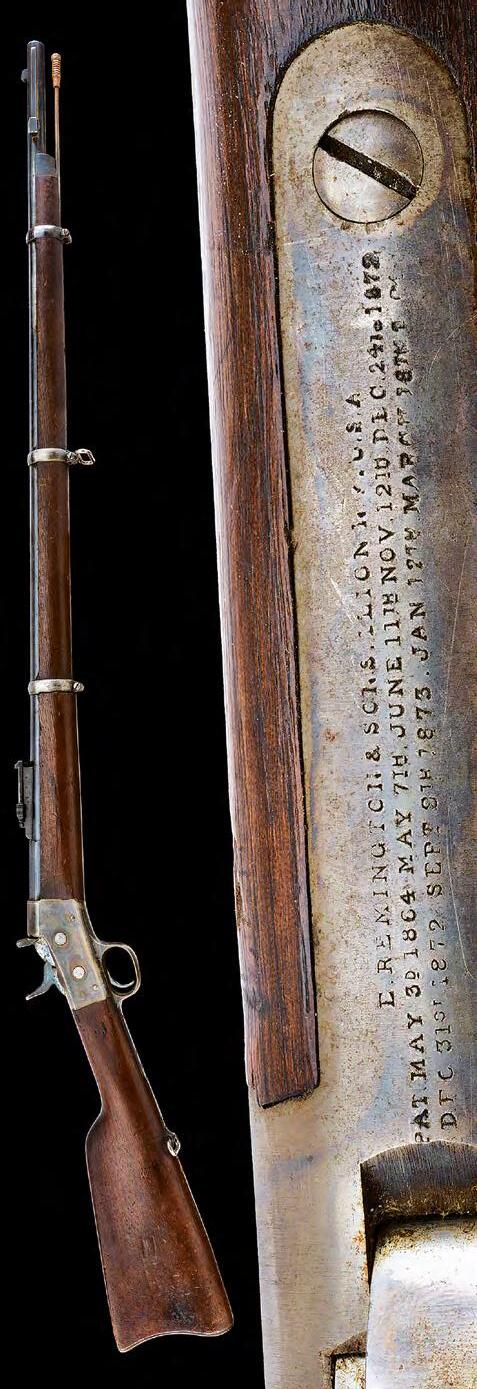 E. REMINGTON & SONS. ILION N.Y. U.S.A
PAT. MAY 3D 1864 MAY 7TH JUNE 11TH NOV. 12TH DEC. 24TH 1872
DEC 31ST 1872 SEPT 9TH 1873. JAN 12TH MARCH